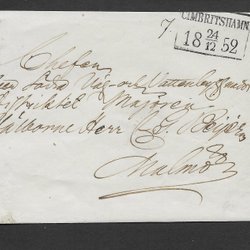 CIMBRITSHAMN
7.
18 24/12 52
Chefen
Södra Väg och Vattenbyggnads
Distriktet Majoren
Välborne Herr C.
Malmö